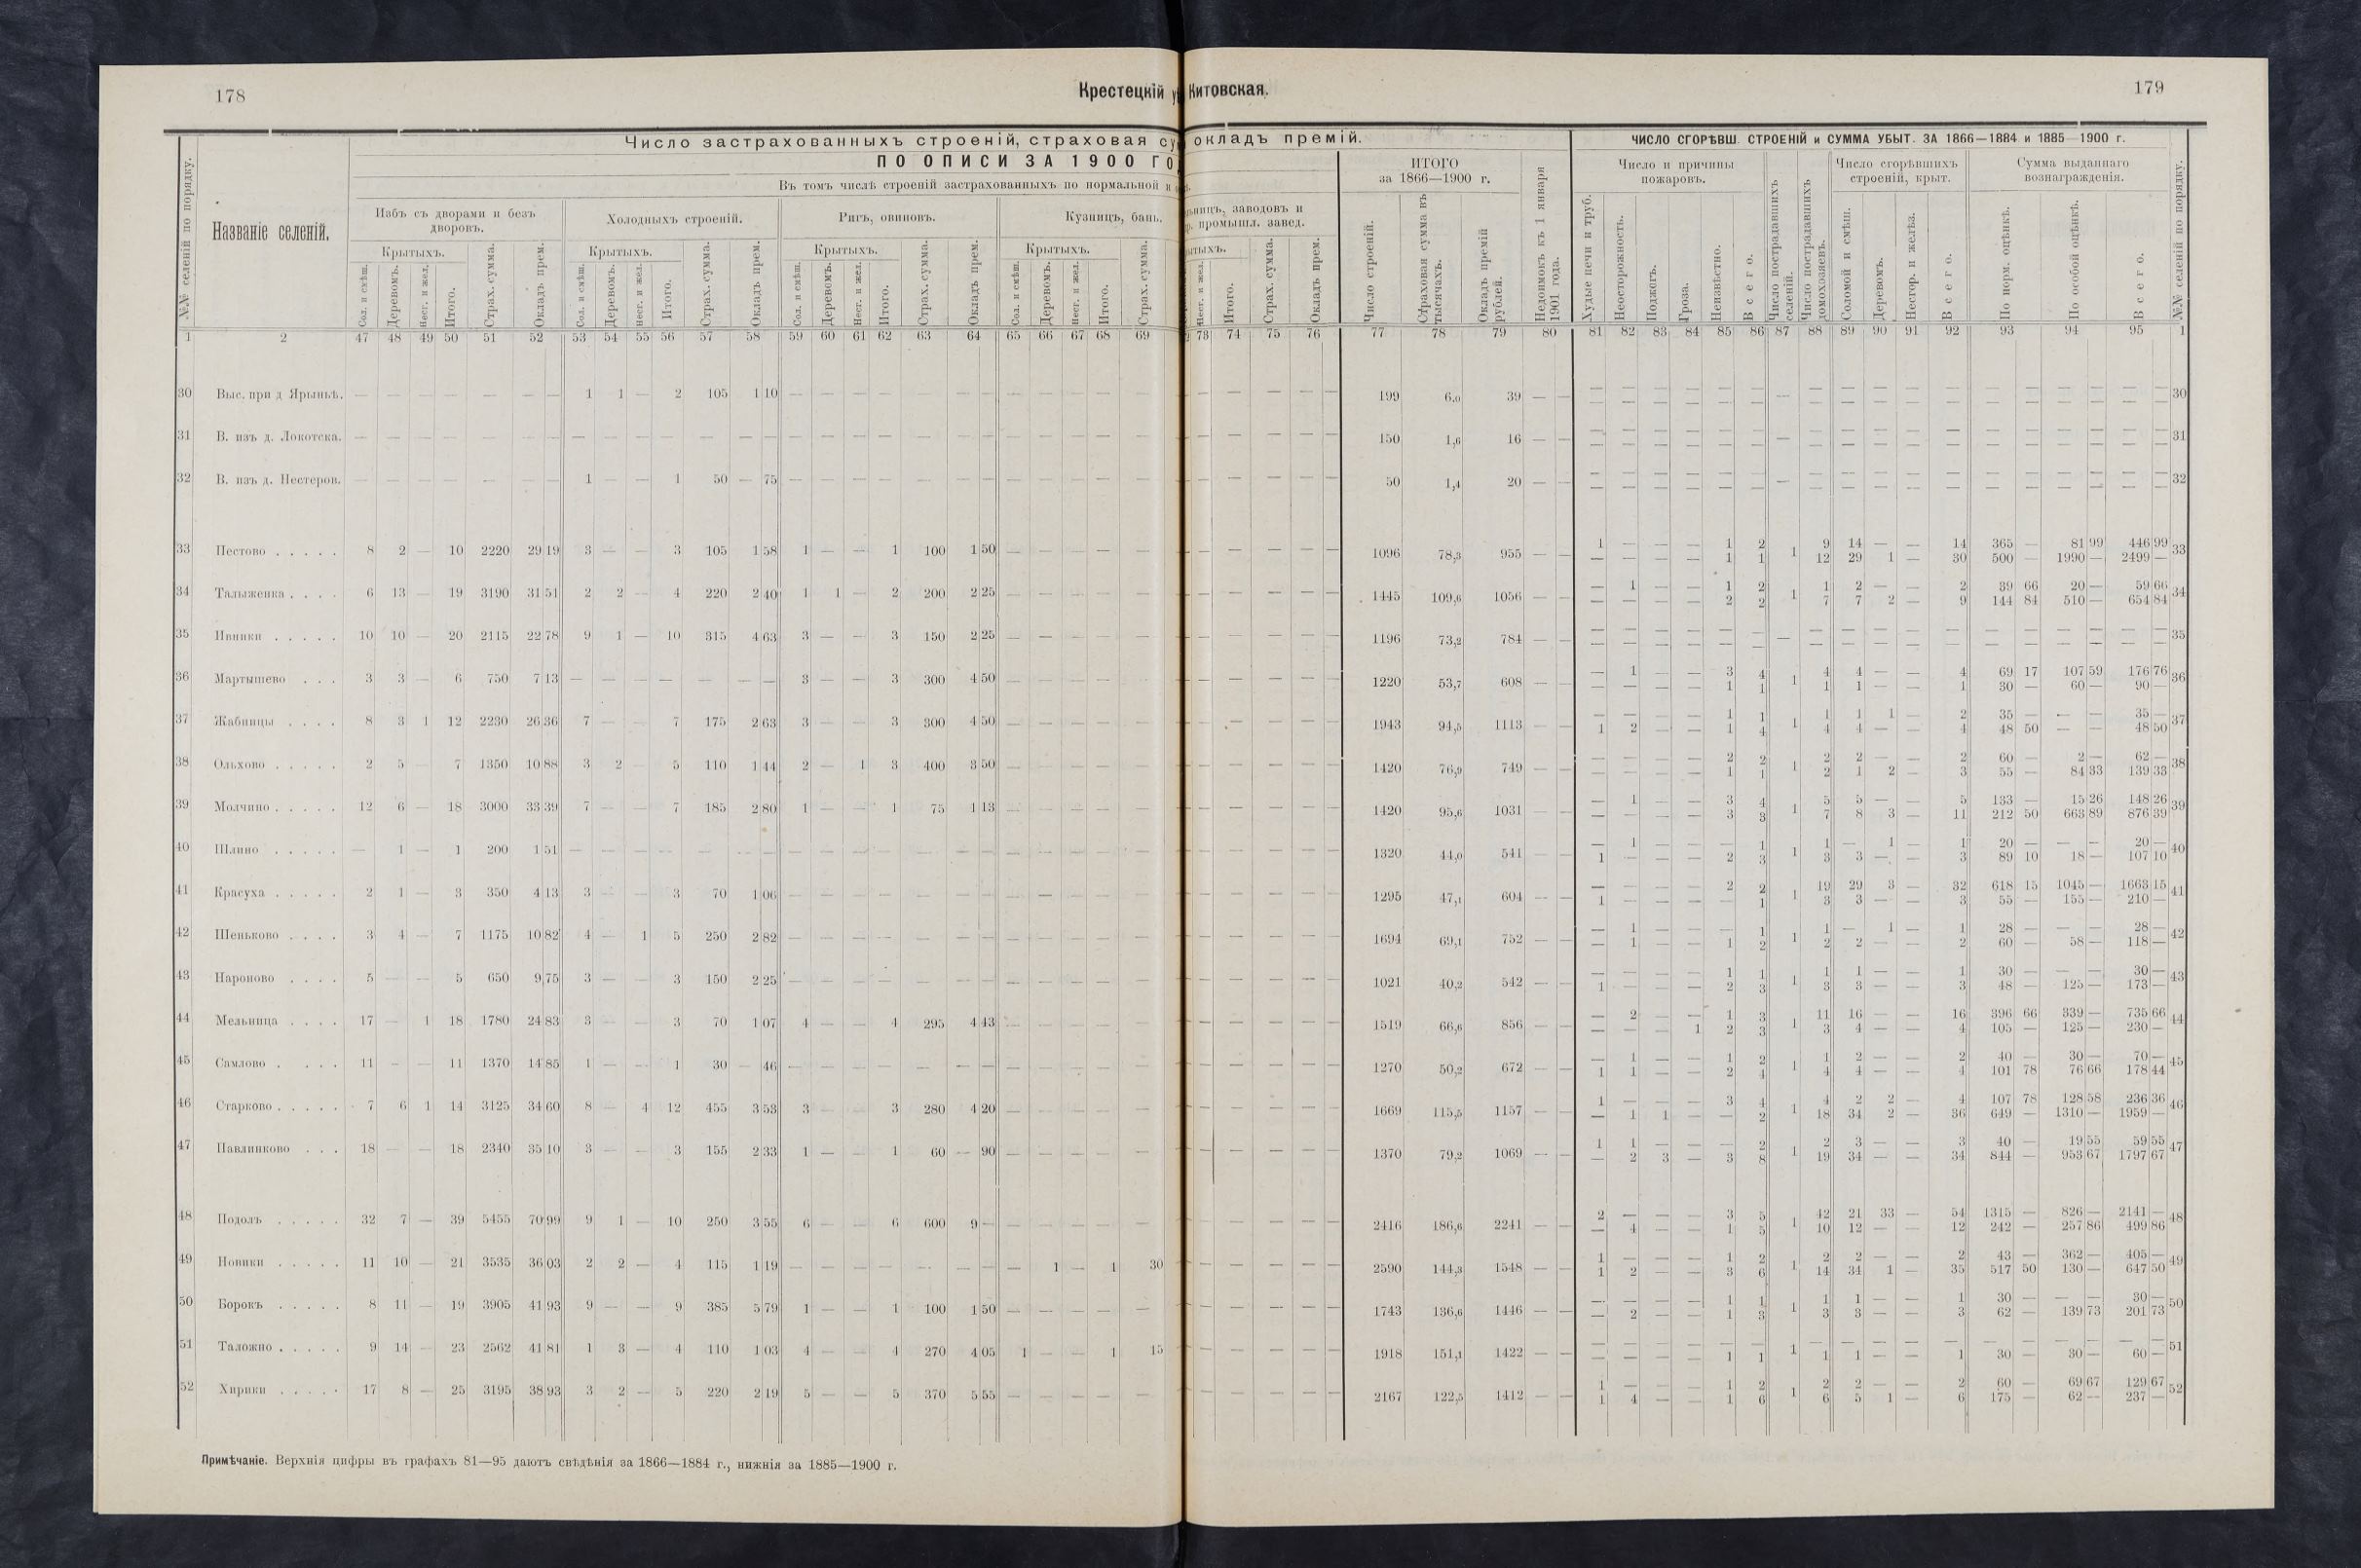 178
Крестецкій у
Китовская.
179
Число застрахованныхъ строеній, страховая су
окладъ премій.
ЧИСЛО СГОРѢВШ. СТРОЕНІЙ и СУММА УБЫТ. ЗА 1866—1884 и 1885—1900 г.
ПО ОПИСИ ЗА 1900 ГО
Въ томъ числѣ строеній застрахованныхъ по нормальной и
№№ селеній по порядку.
Названіе селеній.
Избъ съ дворами и безъ
дворовъ.
Холодныхъ строеній.
Ригъ, овиновъ.
Кузницъ, бань.
заводовъ и
промышл. завед.
ИТОГО
за 1866—1900 г.
Недоимокъ къ 1 января
1901 года.
Число и причины
пожаровъ.
Число пострадавшихъ
селеній.
Число пострадавшихъ
домохозяевъ.
Число сгорѣвшихъ
строеній, крыт.
Сумма выданнаго
вознагражденія.
№№ селеній по порядку.
Крытыхъ. Крытыхъ. Крытыхъ. Крытыхъ.
Сол. и смѣш. Деревомъ. Несг. и жел. Итого. Страх. сумма. Окладъ прем.
Сол. и смѣш. Деревомъ. Несг. и жел. Итого. Страх. сумма. Окладъ прем.
Сол. и смѣш. Деревомъ. Несг. и жел. Итого. Страх. сумма. Окладъ прем.
Сол. и смѣш. Деревомъ. Несг. и жел. Итого. Страх. сумма.
Несг. и жел. Итого. Страх. сумма. Окладъ прем.
Число строеній.
Страховая сумма въ
тысячахъ.
Окладъ премій
рублей.
Худые печи и труб. Неосторожность. Поджогъ. Гроза. Неизвѣстно. Всего.
Соломой и смѣш. Деревомъ. Нестор. и желѣз. Всего.
По норм. оцѣнкѣ. По особой оцѣнкѣ. Всего.
1 2 47 48 49 50 51 52 53 54 55 56 57 58 59 60 61 62 63 64 65 66 67 68 69 73 74 75 76 77 78 79 80 81 82 83 84 85 86 87 88 89 90 91 92 93 94 95 1
30 Выс. при д Ярыньѣ. — — — — — — — 1 1 — 2 105 1 10 — — — — — — — — — — — — — — — — — 199 6,0 39 — — — — — — — — — — — — — — — — — — — — 30
— — — — — — — — — — — — — — — — —
31 В. изъ д. Локотска. — — — — — — — — — — — — — — — — — — — — — — — — — — — — — — — 150 1,6 16 — — — — — — — — — — — — — — — — — — — — 31
— — — — — — — — — — — — — — — — —
32 В. изъ д. Нестеров. — — — — — — — 1 — — 1 50 — 75 — — — — — — — — — — — — — — — — — 50 1,4 20 — — — — — — — — — — — — — — — — — — — — 32
— — — — — — — — — — — — — — — — —
33 Пестово . . . . . 8 2 — 10 2220 29 19 3 — — 3 105 1 58 1 — — 1 100 1 50 — — — — — — — — — — 1096 78,3 955 — — 1 — — — 1 2 1 9 14 — — 14 365 — 81 99 446 99 33
— — — — 1 1 12 29 1 — 30 500 — 1990 — 2499 —
34 Талыженка . . . . 6 13 — 19 3190 31 51 2 2 — 4 220 2 40 1 1 — 2 200 2 25 — — — — — — — — — — 1445 109,6 1056 — — — 1 — — 1 2 1 1 2 — — 2 39 66 20 — 59 66 34
— — — — 2 2 7 7 2 — 9 144 84 510 — 654 84
35 Ивники . . . . . 10 10 — 20 2115 22 78 9 1 — 10 315 4 63 3 — — 3 150 2 25 — — — — — — — — — — 1196 73,2 784 — — — — — — — — — — — — — — — — — — — — 35
— — — — — — — — — — — — — — — — —
36 Мартышево . . . 3 3 — 6 750 7 13 — — — — — — — 3 — — 3 300 4 50 — — — — — — — — — — 1220 53,7 608 — — — 1 — — 3 4 1 4 4 — — 4 69 17 107 59 176 76 36
— — — — 1 1 1 1 — — 1 30 — 60 — 90 —
37 Жабницы . . . . 8 3 1 12 2230 26 36 7 — — 7 175 2 63 3 — — 3 300 4 50 — — — — — — — — — — 1943 94,5 1113 — — — — — — 1 1 1 1 1 1 — 2 35 — — — 35 — 37
1 2 — — 1 4 4 4 — — 4 48 50 — — 48 50
38 Ольхово . . . . . 2 5 — 7 1350 10 88 3 2 — 5 110 1 44 2 — 1 3 400 3 50 — — — — — — — — — — 1420 76,9 749 — — — — — — 2 2 1 2 2 — — 2 60 — 2 — 62 — 38
— — — — 1 1 2 1 2 — 3 55 — 84 33 139 33
39 Молчино . . . . . 12 6 — 18 3000 33 39 7 — — 7 185 2 80 1 — — 1 75 1 13 — — — — — — — — — — 1420 95,6 1031 — — — 1 — — 3 4 1 5 5 — — 5 133 — 15 26 148 26 39
— — — — 3 3 7 8 3 — 11 212 50 663 89 876 39
40 Шлино . . . . . — 1 — 1 200 1 51 — — — — — — — — — — — — — — — — — — — — — — — — 1320 44,0 541 — — — 1 — — — 1 1 1 — 1 — 1 20 — — — 20 — 40
1 — — — 2 3 3 3 — — 3 89 10 18 — 107 10
41 Красуха . . . . . 2 1 — 3 350 4 13 3 — — 3 70 1 06 — — — — — — — — — — — — — — — — — 1295 47,1 604 — — — — — — 2 2 1 19 29 3 — 32 618 15 1045 — 1663 15 41
1 — — — — 1 3 3 — — 3 55 — 155 — 210 —
42 Шеньково . . . . 3 4 — 7 1175 10 82 4 — 1 5 250 2 82 — — — — — — — — — — — — — — — — — 1694 69,1 752 — — — 1 — — — 1 1 1 — 1 — 1 28 — — — 28 — 42
— 1 — — 1 2 2 2 — — 2 60 — 58 — 118 —
43 Нароново . . . . 5 — — 5 650 9,75 3 — — 3 150 2 25 — — — — — — — — — — — — — — — — — 1021 40,2 542 — — — — — — 1 1 1 1 1 — — 1 30 — — — 30 — 43
1 — — — 2 3 3 3 — — 3 48 — 125 — 173 —
44 Мельница . . . . 17 — 1 18 1780 24 83 3 — — 3 70 1 07 4 — — 4 295 4 43 — — — — — — — — — — 1519 66,6 856 — — — 2 — — 1 3 1 11 16 — — 16 396 66 339 — 735 66 44
— — — 1 2 3 3 4 — — 4 105 — 125 — 230 —
45 Самлово . . . . 11 — — 11 1370 14 85 1 — — 1 30 — 46 — — — — — — — — — — — — — — — — — 1270 50,2 672 — — — 1 — — 1 2 1 1 2 — — 2 40 — 30 — 70 — 45
1 1 — — 2 4 4 4 — — 4 101 78 76 66 178 44
46 Старково . . . . . 7 6 1 14 3125 34 60 8 — 4 12 455 3 53 3 — — 3 280 4 20 — — — — — — — — — — 1669 115,5 1157 — — 1 — — — 3 4 1 4 2 2 — 4 107 78 128 58 236 36 46
— 1 1 — — 2 18 34 2 — 36 649 — 1310 — 1959 —
47 Павлинково . . . 18 — — 18 2340 35 10 3 — — 3 155 2 33 1 — — 1 60 — 90 — — — — — — — — — — 1370 79,2 1069 — — 1 1 — — — 2 1 2 3 — — 3 40 — 19 55 59 55 47
— 2 3 — 3 8 19 34 — — 34 844 — 953 67 1797 67
48 Подолъ . . . . . 32 7 — 39 5455 70 99 9 1 — 10 250 3 55 6 — — 6 600 9 — — — — — — — — — — — 2416 186,6 2241 — — 2 — — — 3 5 1 42 21 33 — 54 1315 — 826 — 2141 — 48
— 4 — — 1 5 10 12 — — 12 242 — 257 86 499 86
49 Новики . . . . . 11 10 — 21 3535 36 03 2 2 — 4 115 1 19 — — — — — — — — 1 — 1 30 — — — — — 2590 144,3 1548 — — 1 — — — 1 2 1 2 2 — — 2 43 — 362 — 405 — 49
1 2 — — 3 6 14 34 1 — 35 517 50 130 — 647 50
50 Борокъ . . . . . 8 11 — 19 3905 41 93 9 — — 9 385 5 79 1 — — 1 100 1 50 — — — — — — — — — — 1743 136,6 1446 — — — — — — 1 1 1 1 1 — — 1 30 — — — 30 — 50
— 2 — — 1 3 3 3 — — 3 62 — 139 73 201 73
51 Таложно . . . . . 9 14 — 23 2562 41 81 1 3 — 4 110 1 03 4 — — 4 270 4 05 1 — — 1 15 — — — — — 1918 151,1 1422 — — — — — — — — 1 — — — — — — — — — — — 51
— — — — 1 1 1 1 — — 1 30 — 30 — 60 —
52 Хирики . . . . . 17 8 — 25 3195 38 93 3 2 — 5 220 2 19 5 — — 5 370 5 55 — — — — — — — — — — 2167 122,5 1412 — — 1 — — — 1 2 1 2 2 — — 2 60 — 69 67 129 67 52
1 4 — — 1 6 6 5 1 — 6 175 — 62 — 237 —
Примѣчаніе. Верхнія цифры въ графахъ 81—95 даютъ свѣдѣнія за 1866—1884 г., нижнія за 1885—1900 г.